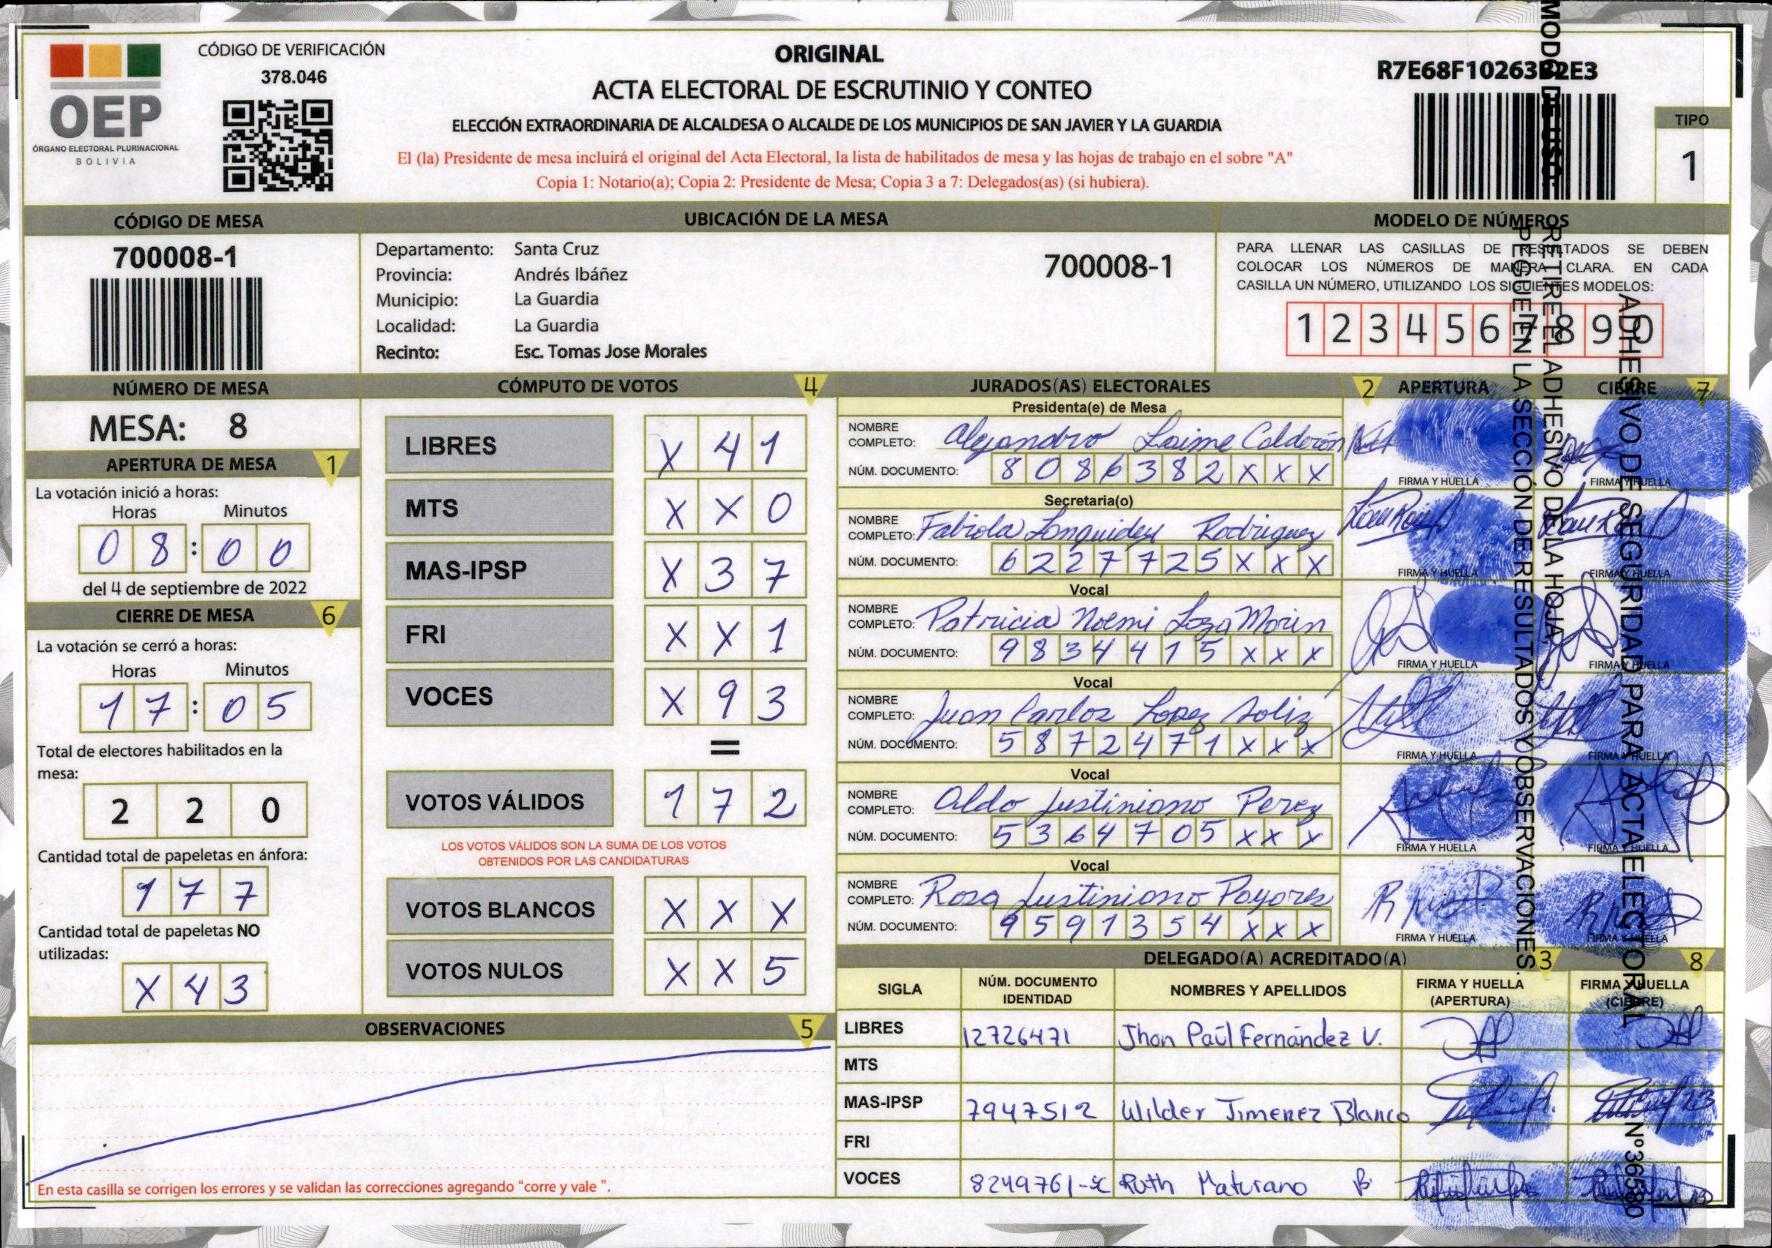 CÓDIGO DE VERIFICACIÓN
378.046
OEP
ÓRGANO ELECTORAL PLURINACIONAL
BOLIVIA
ORIGINAL
ACTA ELECTORAL DE ESCRUTINIO Y CONTEO
ELECCIÓN EXTRAORDINARIA DE ALCALDESA O ALCALDE DE LOS MUNICIPIOS DE SAN JAVIER Y LA GUARDIA
El (la) Presidente de mesa incluirá el original del Acta Electoral, la lista de habilitados de mesa y las hojas de trabajo en el sobre "A"
Copia 1: Notario(a); Copia 2: Presidente de Mesa; Copia 3 a 7: Delegados(as) (si hubiera).
R7E68F10263B2E3
TIPO
1
CÓDIGO DE MESA
700008-1
UBICACIÓN DE LA MESA
Departamento: Santa Cruz
Provincia: Andrés Ibáñez
Municipio: La Guardia
Localidad: La Guardia
Recinto: Esc. Tomas Jose Morales
700008-1
MODELO DE NÚMEROS
PARA LLENAR LAS CASILLAS DE RESULTADOS SE DEBEN
COLOCAR LOS NÚMEROS DE MANERA CLARA. EN CADA
CASILLA UN NÚMERO, UTILIZANDO LOS SIGUIENTES MODELOS:
1 2 3 4 5 6 7 8 9 0
NÚMERO DE MESA
MESA: 8
APERTURA DE MESA 1
La votación inició a horas:
Horas Minutos
08:00
del 4 de septiembre de 2022
CIERRE DE MESA 6
La votación se cerró a horas:
Horas Minutos
17:05
Total de electores habilitados en la
mesa:
2 2 0
Cantidad total de papeletas en ánfora:
1 7 7
Cantidad total de papeletas NO
utilizadas:
X 4 3
CÓMPUTO DE VOTOS 4
LIBRES X 4 1
MTS X X 0
MAS-IPSP X 3 7
FRI X X 1
VOCES X 9 3
=
VOTOS VÁLIDOS 1 7 2
LOS VOTOS VÁLIDOS SON LA SUMA DE LOS VOTOS
OBTENIDOS POR LAS CANDIDATURAS
VOTOS BLANCOS X X X
VOTOS NULOS X X 5
OBSERVACIONES 5
En esta casilla se corrigen los errores y se validan las correcciones agregando "corre y vale ".
JURADOS(AS) ELECTORALES 2 APERTURA CIERRE 7
Presidenta(e) de Mesa
NOMBRE
COMPLETO: Alejandro Laime Calderón
NÚM. DOCUMENTO: 8086382xxx
FIRMA Y HUELLA FIRMA Y HUELLA
Secretaria(o)
NOMBRE
COMPLETO: Fabiola Longuidey Rodriguez
NÚM. DOCUMENTO: 6227725xxx
FIRMA Y HUELLA FIRMA Y HUELLA
Vocal
NOMBRE
COMPLETO: Patricia Noemi Loza Morin
NÚM. DOCUMENTO: 9834415xxx
FIRMA Y HUELLA FIRMA Y HUELLA
Vocal
NOMBRE
COMPLETO: Juan Carlos Lopez Soliz
NÚM. DOCUMENTO: 5872471xxx
FIRMA Y HUELLA FIRMA Y HUELLA
Vocal
NOMBRE
COMPLETO: Aldo Justiniano Perez
NÚM. DOCUMENTO: 5364705xxx
FIRMA Y HUELLA FIRMA Y HUELLA
Vocal
NOMBRE
COMPLETO: Rosa Justiniano Payares
NÚM. DOCUMENTO: 9591354xxx
FIRMA Y HUELLA FIRMA Y HUELLA
DELEGADO(A) ACREDITADO(A) 3 8
SIGLA NÚM. DOCUMENTO IDENTIDAD NOMBRES Y APELLIDOS FIRMA Y HUELLA (APERTURA) FIRMA Y HUELLA (CIERRE)
LIBRES 12726471 Jhon Paúl Fernández V.
MTS
MAS-IPSP 7947512 Wilder Jimenez Blanco
FRI
VOCES 8249761-SC Ruth Maturano B
MODO DE USO:
RETIRE EL ADHESIVO DE LA HOJA
PEGUE EN LA SECCIÓN DE RESULTADOS Y OBSERVACIONES.
ADHESIVO DE SEGURIDAD PARA ACTA ELECTORAL
Nº36580